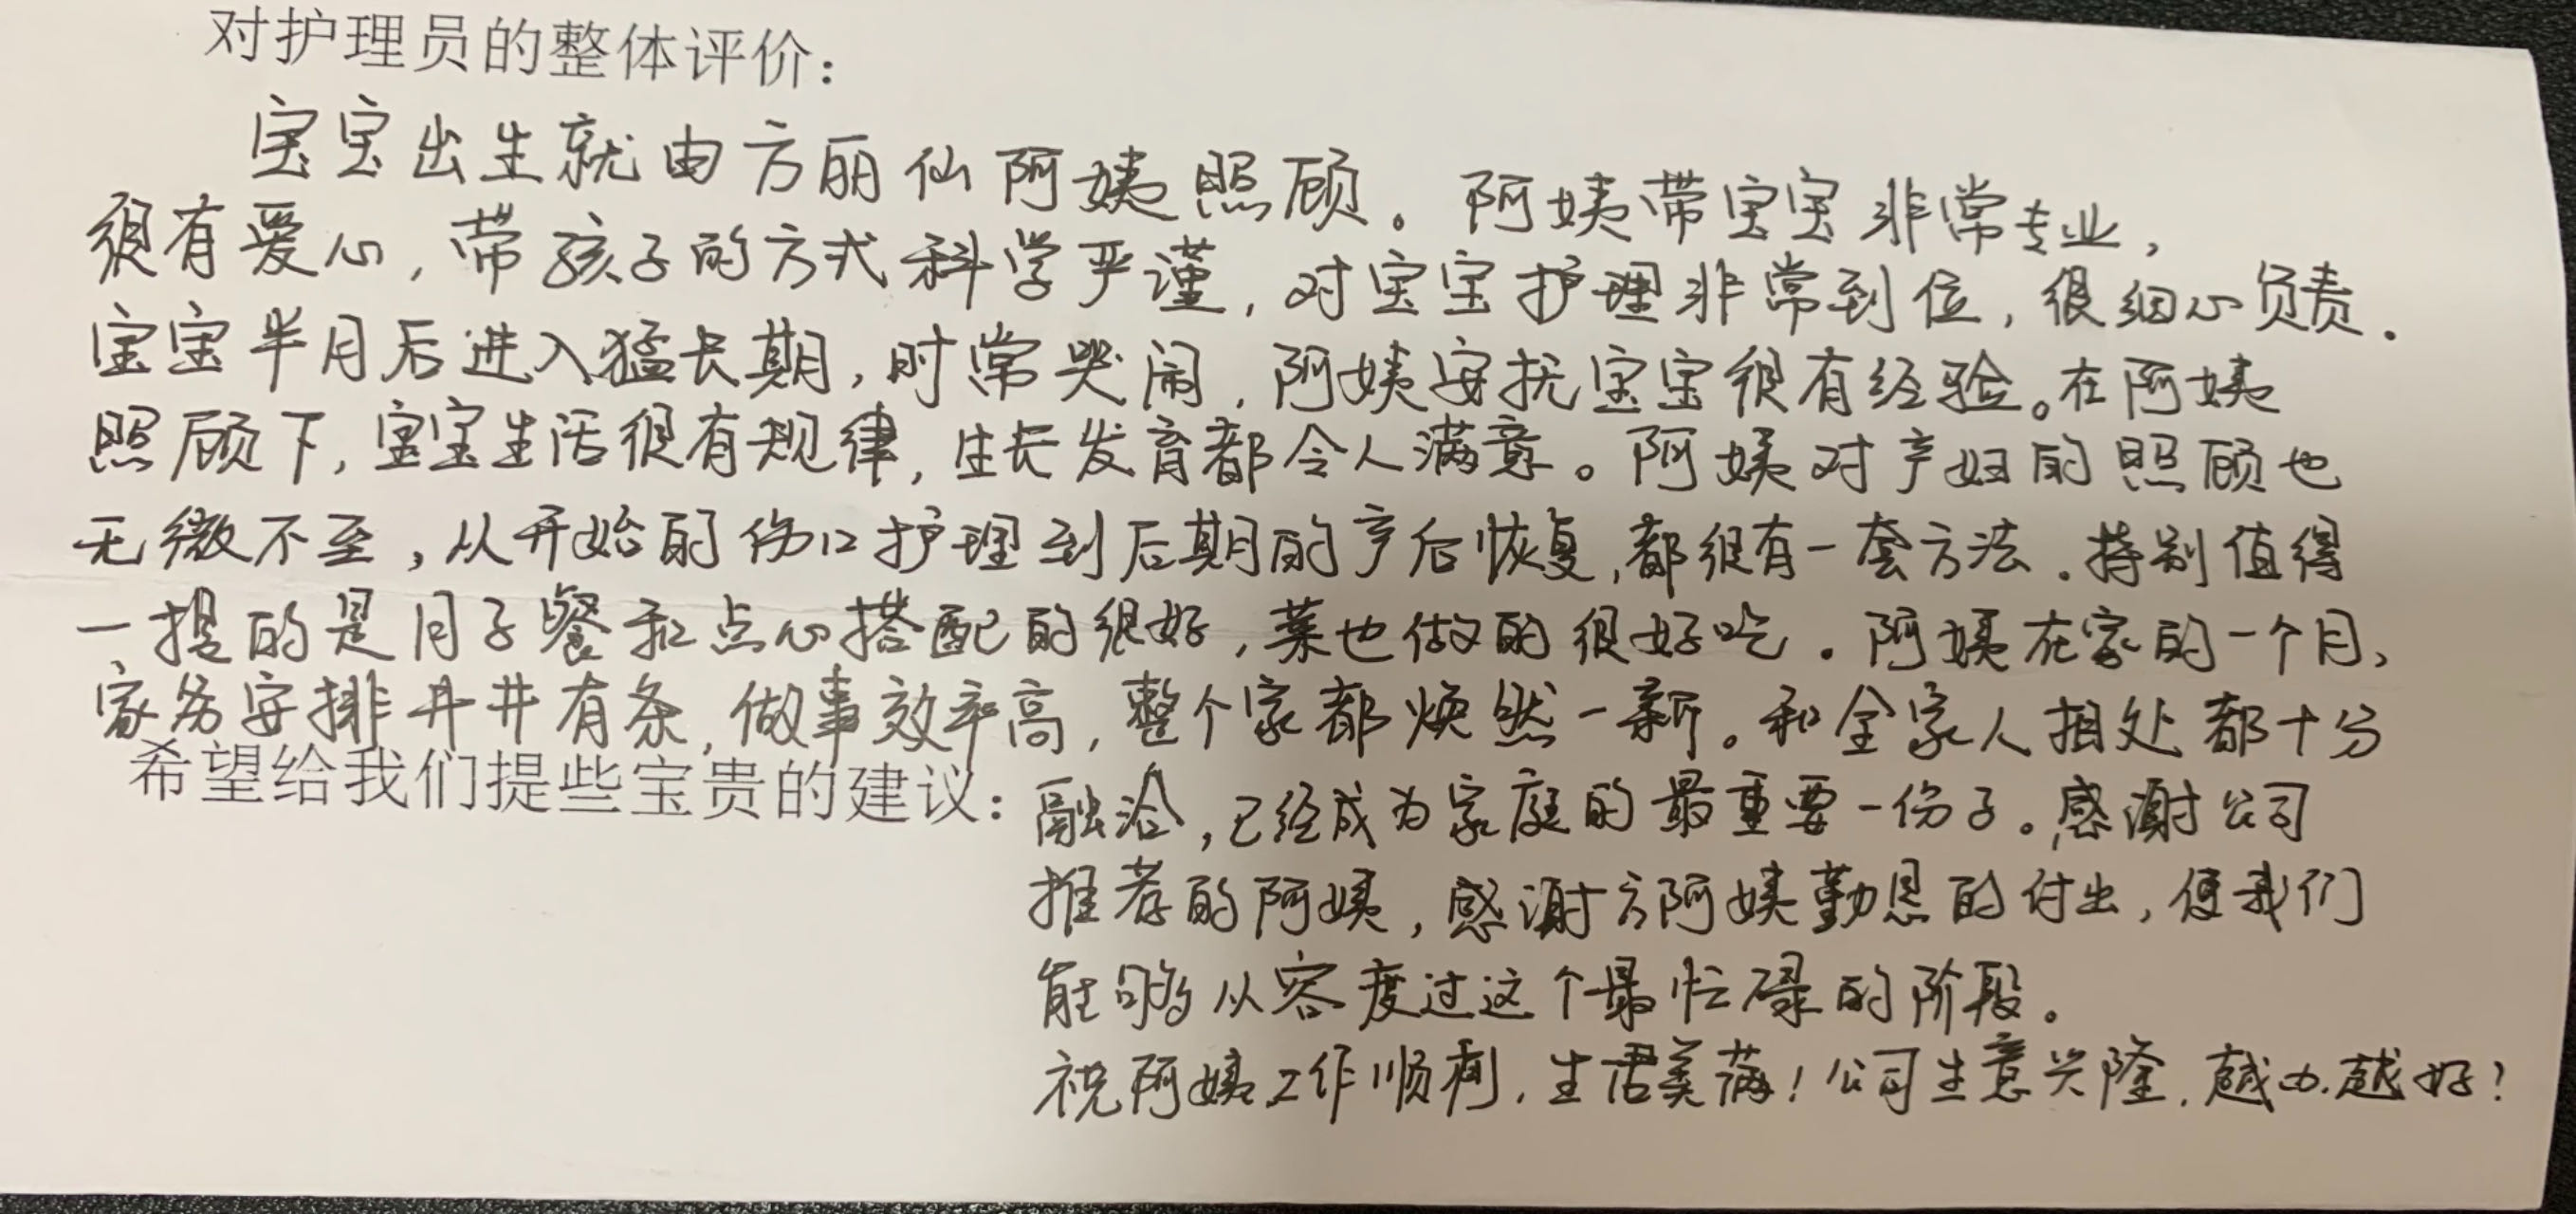 对护理员的整体评价：
宝宝出生就由方丽仙阿姨照顾。阿姨带宝宝非常专业，
很有爱心，带孩子的方式科学严谨，对宝宝护理非常到位，很细心负责.
宝宝半月后进入猛长期，时常哭闹，阿姨安抚宝宝很有经验。在阿姨
照顾下，宝宝生活很有规律，生长发育都令人满意。阿姨对产妇的照顾也
无微不至，从开始的伤口护理到后期的产后恢复，都很有一套方法.特别值得
一提的是月子餐和点心搭配的很好，菜也做的很好吃.阿姨在家的一个月、
家务安排井井有条，做事效率高，整个家都焕然一新。和全家人相处都十分
希望给我们提些宝贵的建议：融洽，已经成为家庭的最重要一份子。感谢公司
推荐的阿姨，感谢方阿姨勤恳的付出，使我们
能够从容度过这个最忙碌的阶段。
祝阿姨工作顺利，生活美满！公司生意兴隆，越办越好！